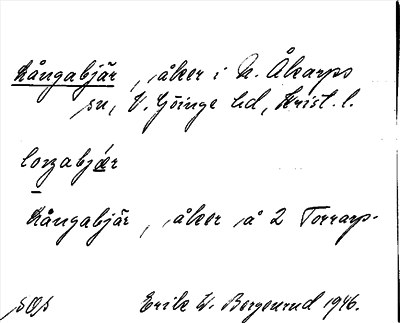 Långabjär, åker i N. Åkarps
sn, V. Göinge hd, Krist. l.
loŋabjær
Långabjär, åker å 2 Torrarp.
Erik W. Bergenrud 1946.